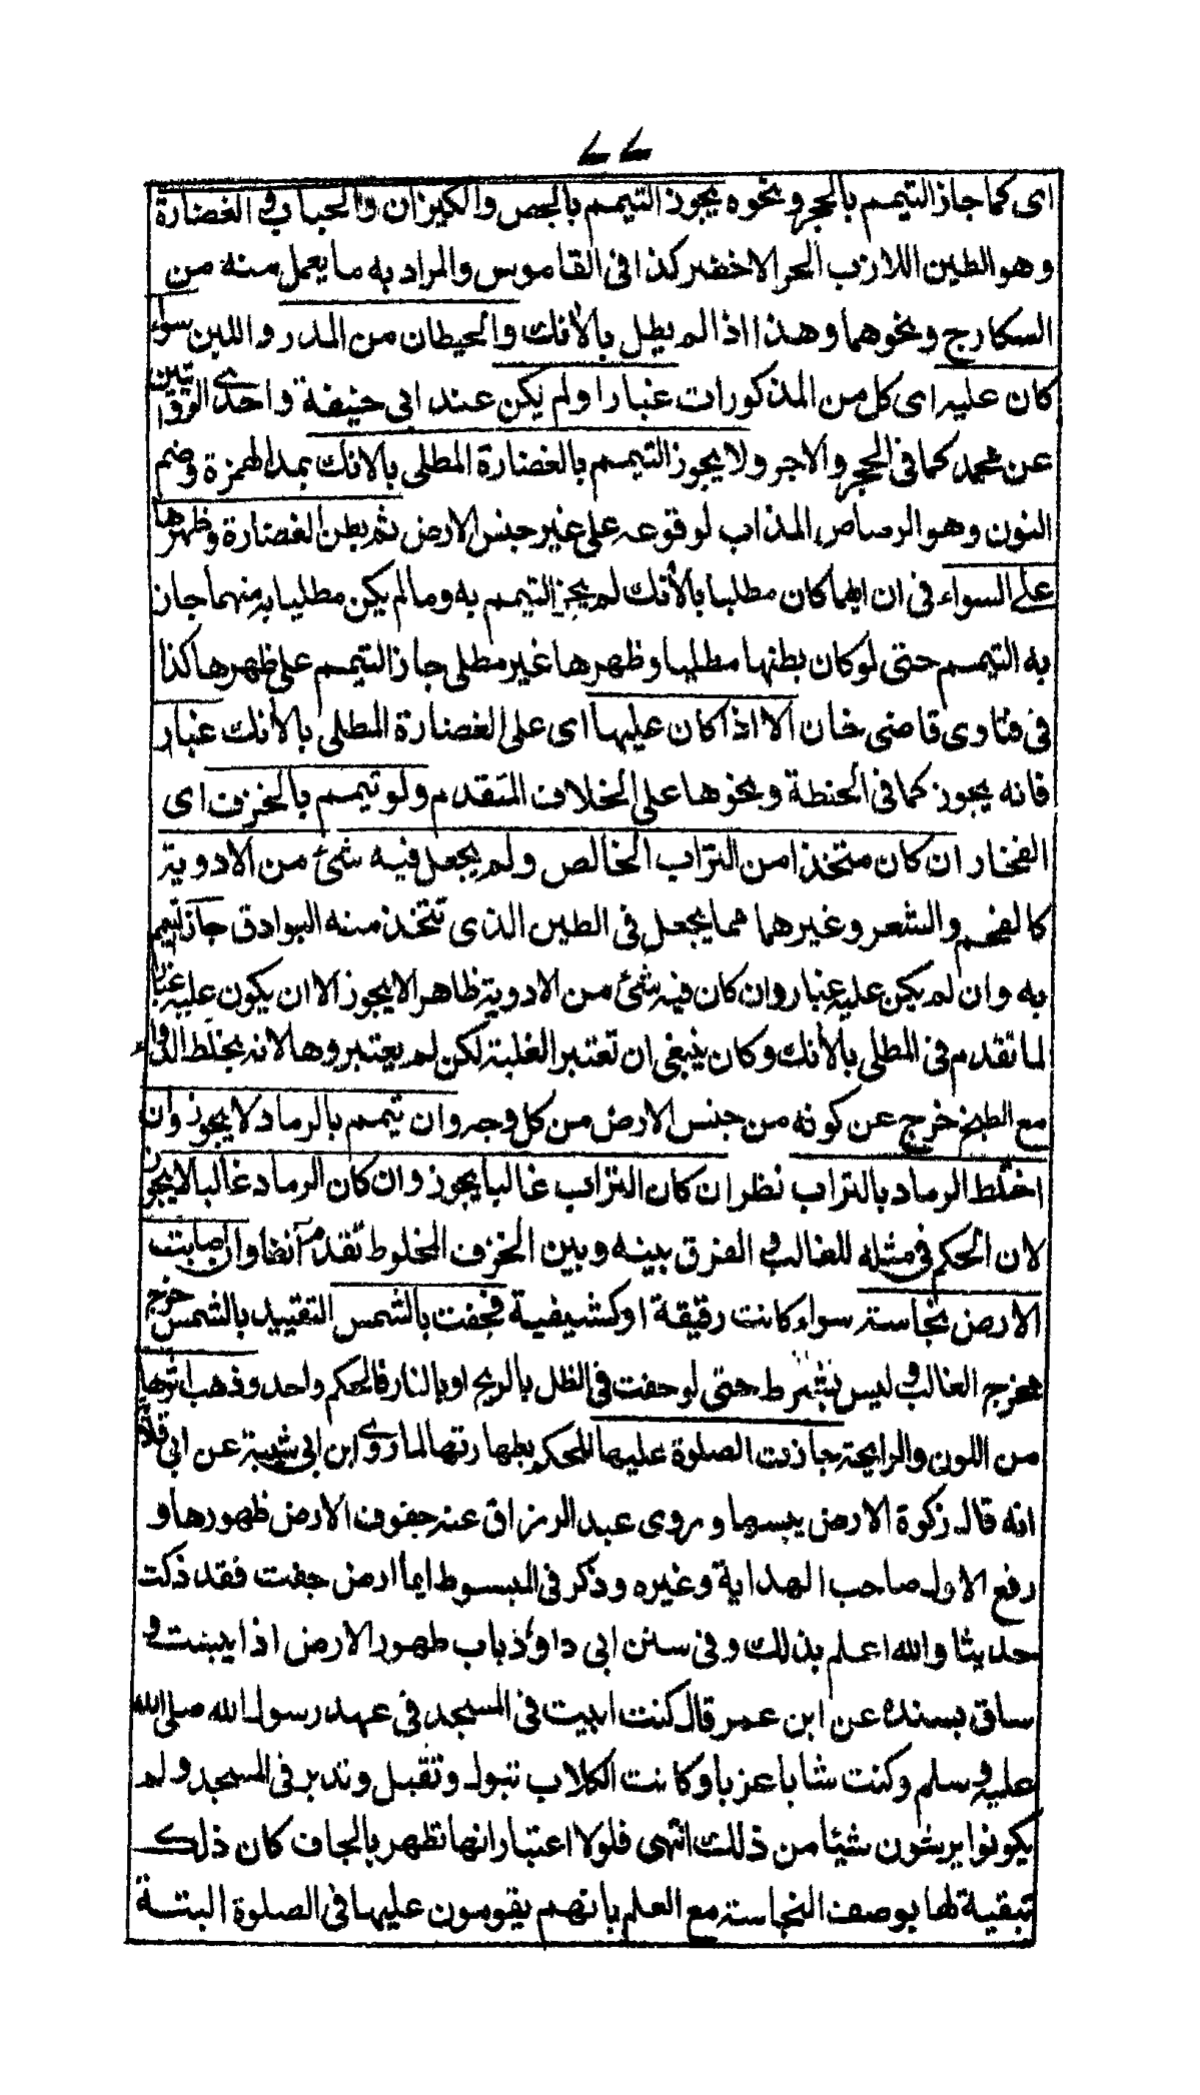 ٧٧
اى كما جاز التيمم بالحجر ونحوه يجوز التيمم بالجص والكيزان والحباب فى الغضارة
وهو الطين اللازب الحر الاخضر كذا فى القاموس والمراد به ما يعمل منه من
السكارج ونحوهما وهذا اذا لم يطل بالأنك والحيطان من المدر واللبن سواء
كان عليه اى كل من المذكورات غبار اولم يكن عند ابى حنيفة واحدى الروايتين
عن محمد كما فى الحجر والاجر ولا يجوز التيمم بالغضارة المطلى بالانك بمد الهمزة وضم
النون وهو الرصاص المذاب لوقوعه على غير جنس الارض ثم بطن الغضارة وظهرها
على السواء فى ان ايهما كان مطليا بالأنك لم يجز التيمم به وما لم يكن مطليا به منهما جاز
به التيمم حتى لو كان بطنها مطليا وظهرها غير مطلى جاز التيمم على ظهرها كذا
فى فتاوى قاضى خان الا اذا كان عليها اى على الغضارة المطلى بالأنك غبار
فانه يجوز كما فى الحنطة ونحوها على الخلاف المتقدم ولو تيمم بالخزف اى
الفخار ان كان متخذا من التراب الخالص ولم يجعل فيه شئ من الادوية
كالفحم والشعر وغيرهما مما يجعل فى الطين الذى تتخذ منه البوادق جاز التيمم
به وان لم يكن عليه غبار وان كان فيه شئ من الادوية ظاهر الا يجوز الا ان يكون عليه غبار
لما تقدم فى المطلى بالأنك وكان ينبغى ان تعتبر الغلبة لكن لم يعتبروها لانه بخلط الدواء
مع الطبخ خرج عن كونه من جنس الارض من كل وجه وان تيمم بالرماد لا يجوز وان
اختلط الرماد بالتراب نظر ان كان التراب غالبا يجوز وان كان الرماد غالبا لا يجوز
لان الحكم فى مثله للغالب والفرق بينه وبين الخزف المخلوط تقدم آنفا وان اصابت
الارض نجاسة سواء كانت رقيقة او كثيفة فجفت بالشمس التقييد بالشمس خرج
مخرج الغالب وليس بشرط حتى لو جفت فى الظل بالريح او بالنار فالحكم واحد وذهب اثرها
من اللون والرايحة جازت الصلوة عليها للحكم بطهارتها لما روى ابن ابى شيبة عن ابى قلابة
انه قال زكوة الارض يبسها وروى عبد الرزاق عنه جفوف الارض طهورها و
رفع الاول صاحب الهداية وغيره وذكر فى المبسوط ايما ارض جفت فقد ذكت
حديثا والله اعلم بذلك وفى سنن ابى داؤد باب طهور الارض اذا يبست و
ساق بسنده عن ابن عمر قال كنت ابيت فى المسجد فى عهد رسول الله صلى الله
عليه وسلم وكنت شابا عزبا وكانت الكلاب تبول وتقبل وتدبر فى المسجد ولم
يكونوا يرشون شيئا من ذلك انتهى فلولا اعتبار انها تطهر بالجاف كان ذلك
تبقية لها بوصف النجاسة مع العلم بانهم يقومون عليها فى الصلوة البتة